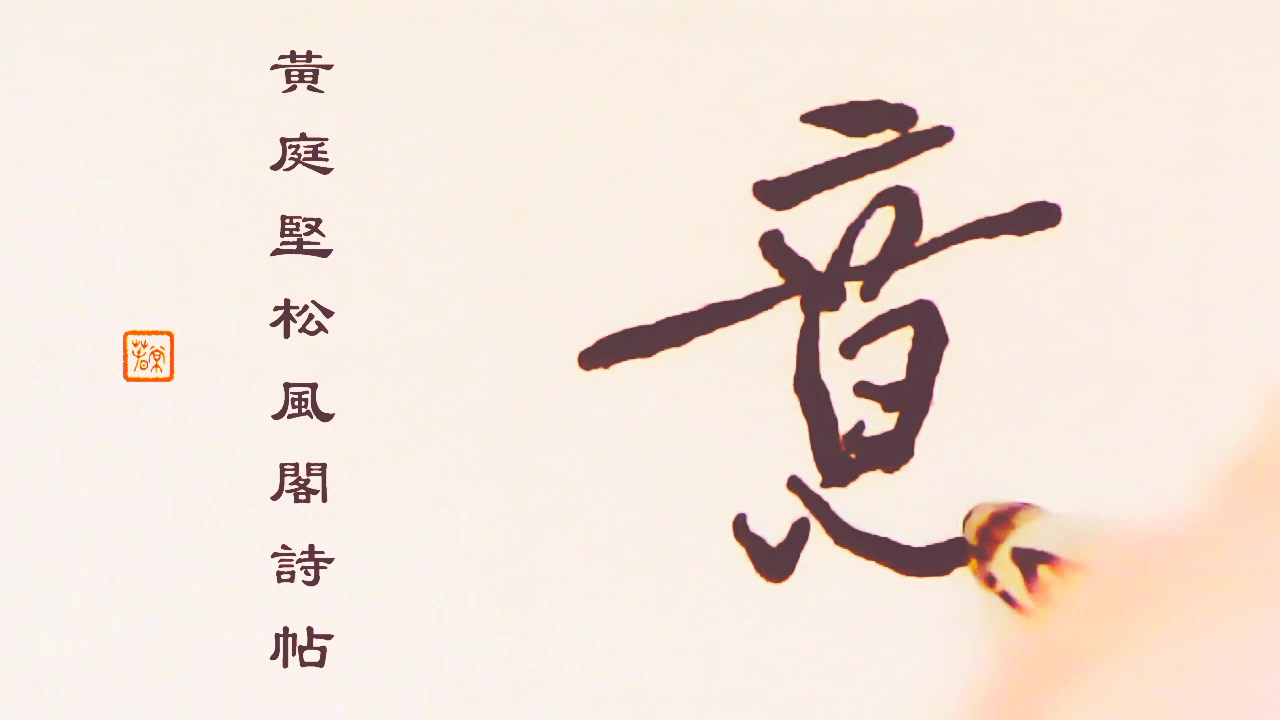 意
黃庭堅松風閣詩帖